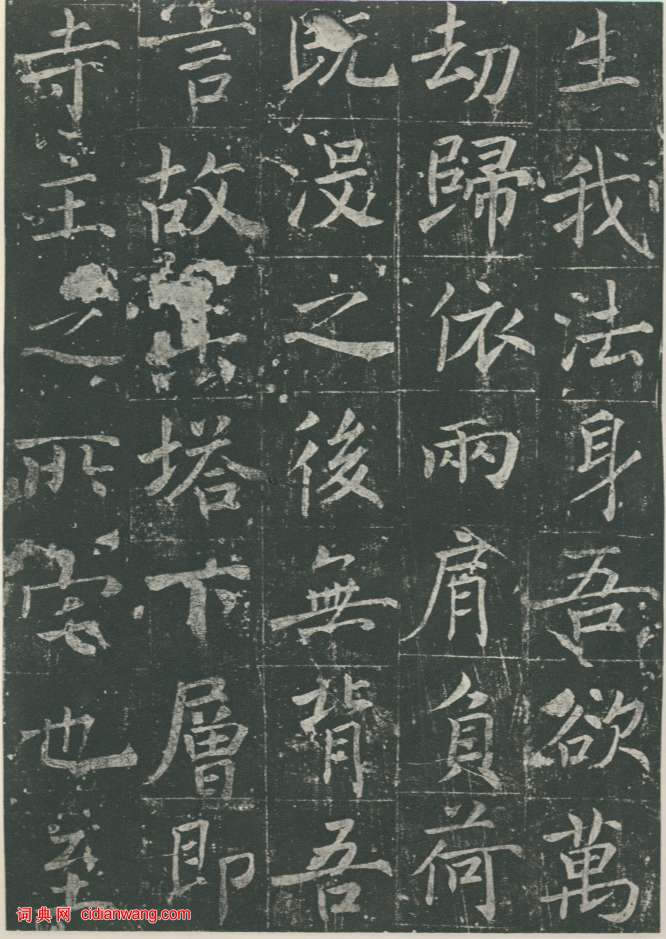 生我法身吾欲萬
劫歸依兩肩負荷
既没之後無背吾
言故其塔下層即
寺主之所宅也至
词典网 cidianwang.com